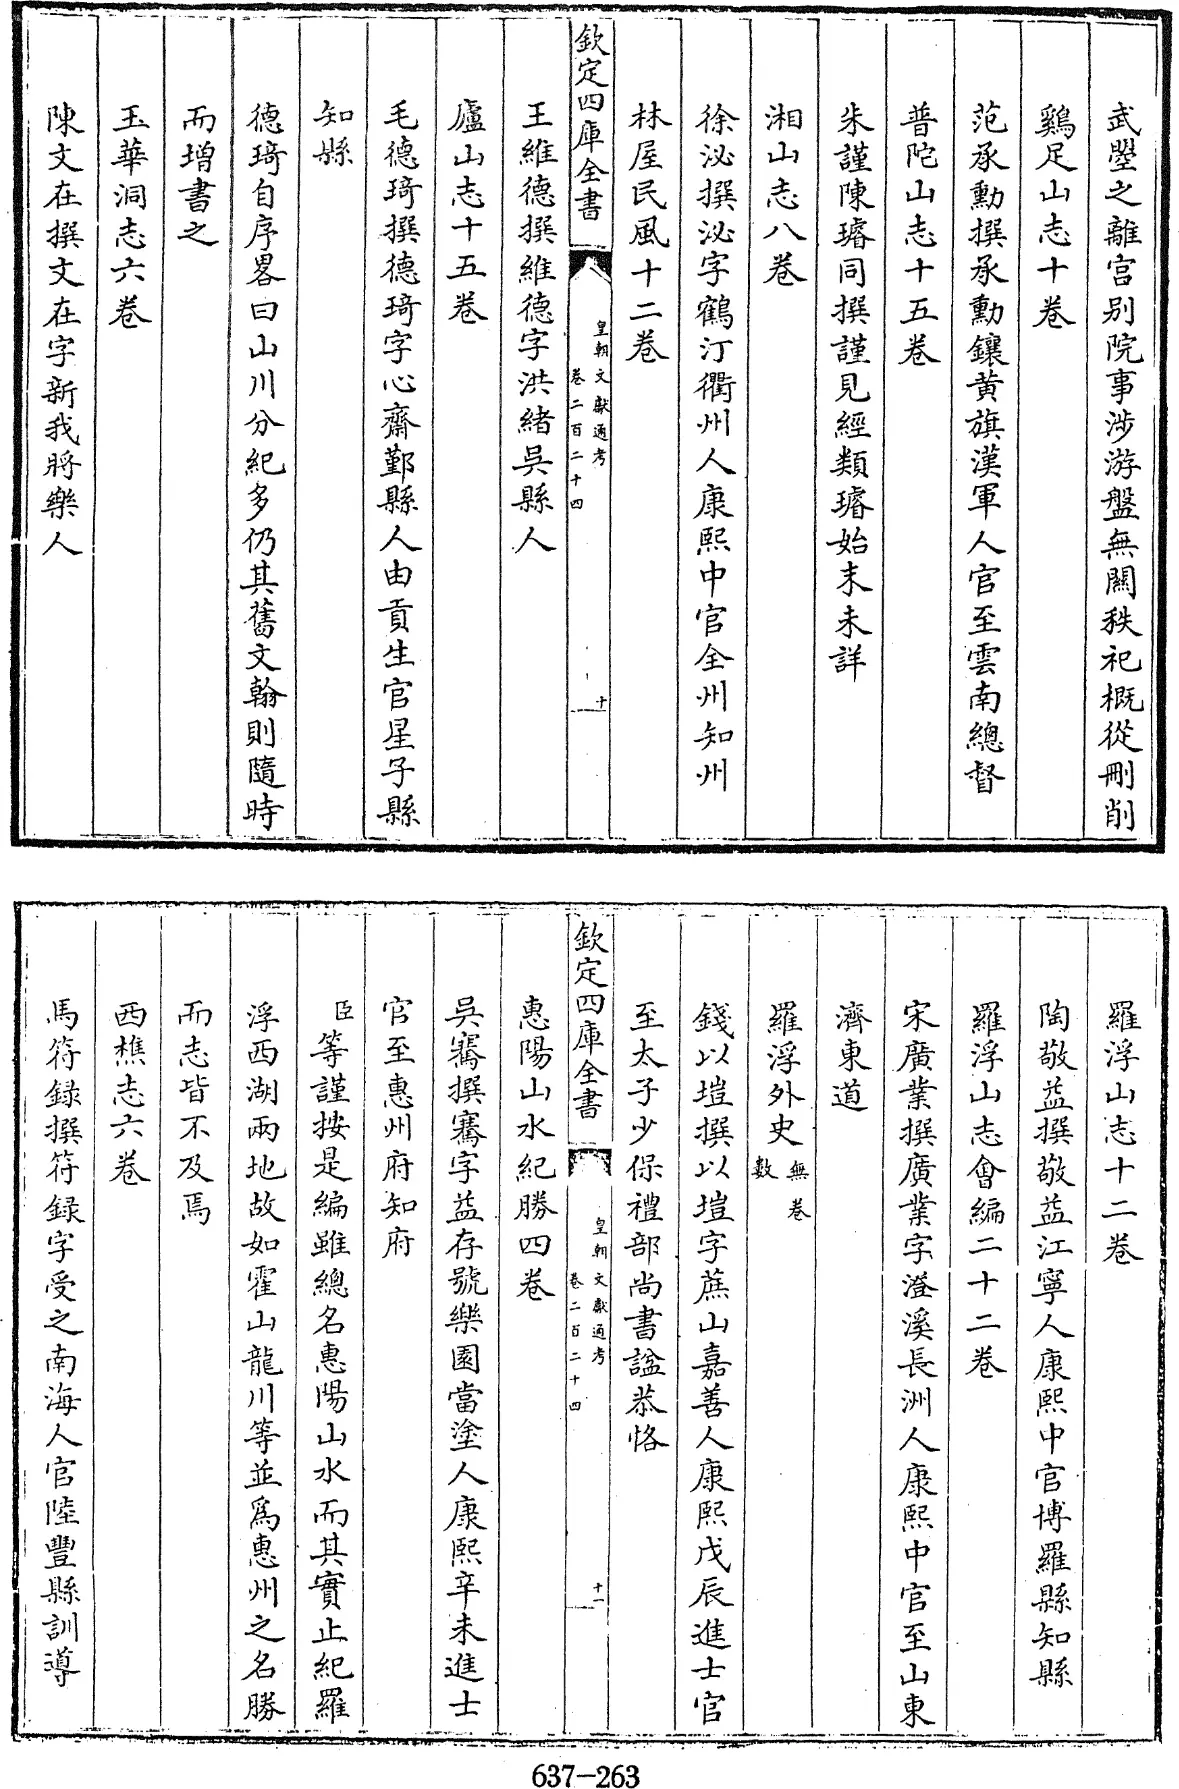 武曌之離宮別院事涉游盤無關秩祀概從刪削
鷄足山志十卷
范承勳撰承勳鑲黄旗漢軍人官至雲南總督
普陀山志十五卷
朱謹陳璿同撰謹見經類璿始末未詳
湘山志八卷
徐泌撰泌字鶴汀衢州人康熙中官全州知州
林屋民風十二卷
欽定四庫全書
皇朝文獻通考
卷二百二十四
十
王維德撰維德字洪緒吳縣人
廬山志十五卷
毛德琦撰德琦字心齋鄞縣人由貢生官星子縣
知縣
德琦自序畧曰山川分紀多仍其舊文翰則隨時
而增書之
玉華洞志六卷
陳文在撰文在字新我將樂人
羅浮山志十二卷
陶敬益撰敬益江寧人康熙中官博羅縣知縣
羅浮山志會編二十二卷
宋廣業撰廣業字澄溪長洲人康熙中官至山東
濟東道
羅浮外史無卷數
錢以塏撰以塏字蔗山嘉善人康熙戊辰進士官
至太子少保禮部尚書諡恭恪
欽定四庫全書
皇朝文獻通考
卷二百二十四
十一
惠陽山水紀勝四卷
吳騫撰騫字益存號樂園當塗人康熙辛未進士
官至惠州府知府
臣等謹按是編雖總名惠陽山水而其實止紀羅
浮西湖兩地故如霍山龍川等並為惠州之名勝
而志皆不及焉
西樵志六卷
馬符録撰符録字受之南海人官陸豐縣訓導
637-263